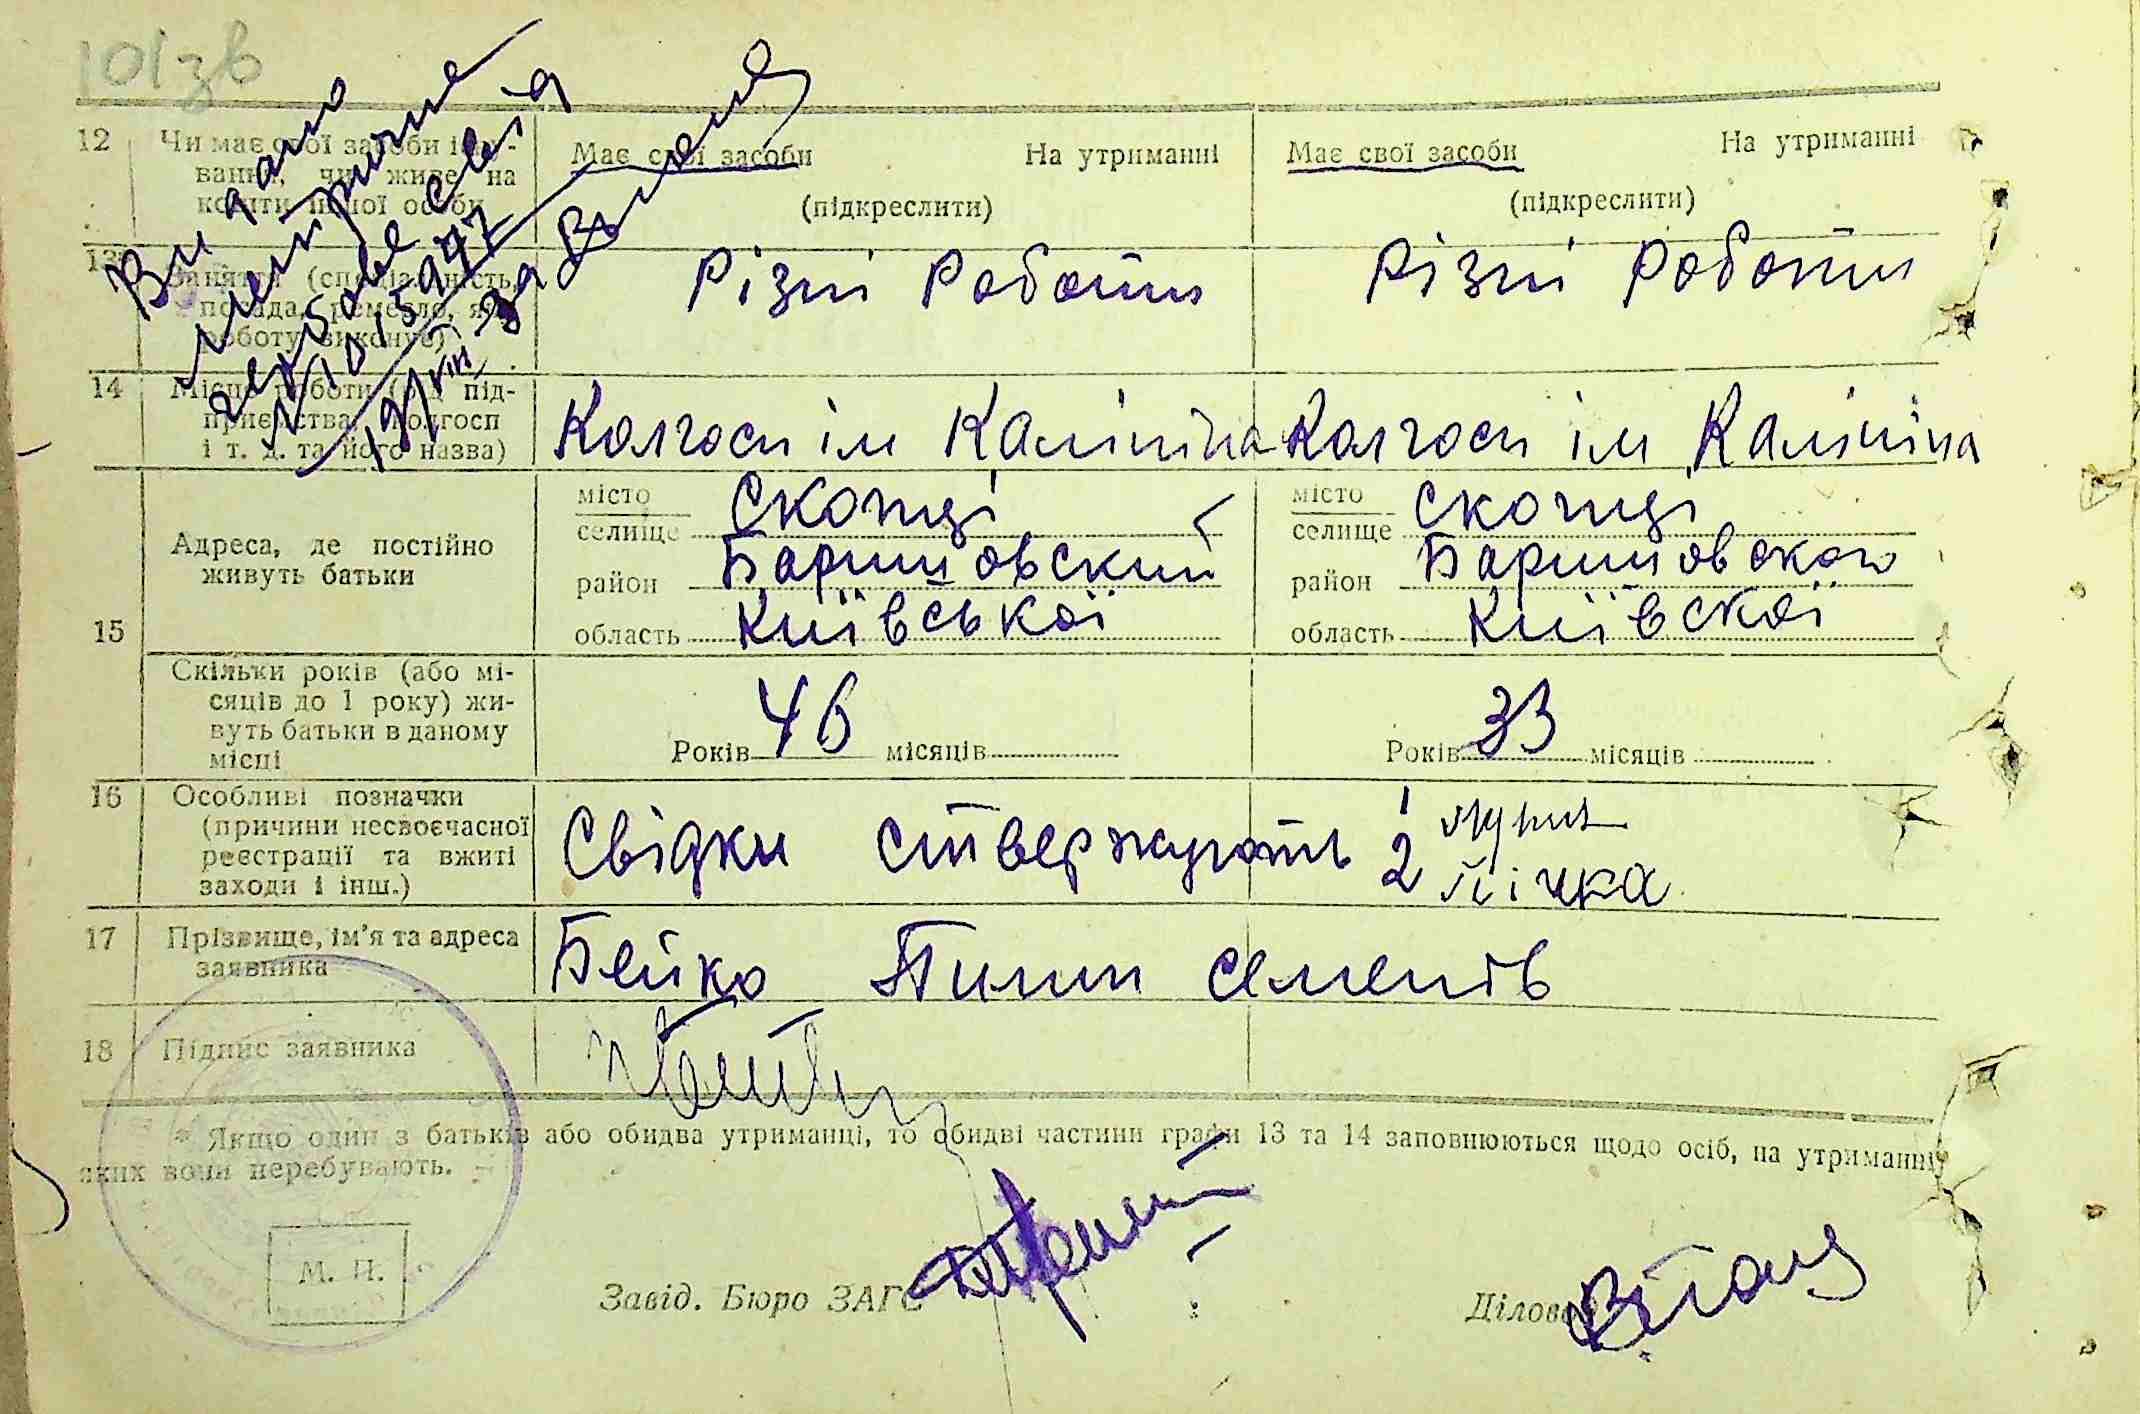 101зв
Видано
метричне
гербове св-ія
№ 015977
12 Чи має свої засоби існу-
вання, чи живе на
кошти іншої особи
Має свої засоби На утриманні Має свої засоби На утриманні
(підкреслити) (підкреслити)
13 Заняття (спеціальність,
посада, ремесло, яку
роботу виконує)
Різні роботи Різні роботи
14 Місце роботи (під-
приємства, колгосп
і т. д. та його назва)
Колгосп ім Калініна Колгосп ім Калініна
15 Адреса, де постійно
живуть батьки
місто
селище Скопці
район Баришовский
область Київської
місто
селище Скопці
район Баришовского
область Київскої
Скільки років (або мі-
сяців до 1 року) жи-
вуть батьки в даному
місці
Років 46 місяців Років 33 місяців
16 Особливі позначки
(причини несвоєчасної
реєстрації та вжиті
заходи і інш.)
Свідки ствержують 1
2
17 Прізвище, ім'я та адреса
заявника
Бейко Пилип Семенів
18 Підпис заявника
* Якщо один з батьків або обидва утриманці, то обидві частини графи 13 та 14 заповнюються щодо осіб, на утриманні
яких вони перебувають.
М. П.
Завід. Бюро ЗАГС Діловод